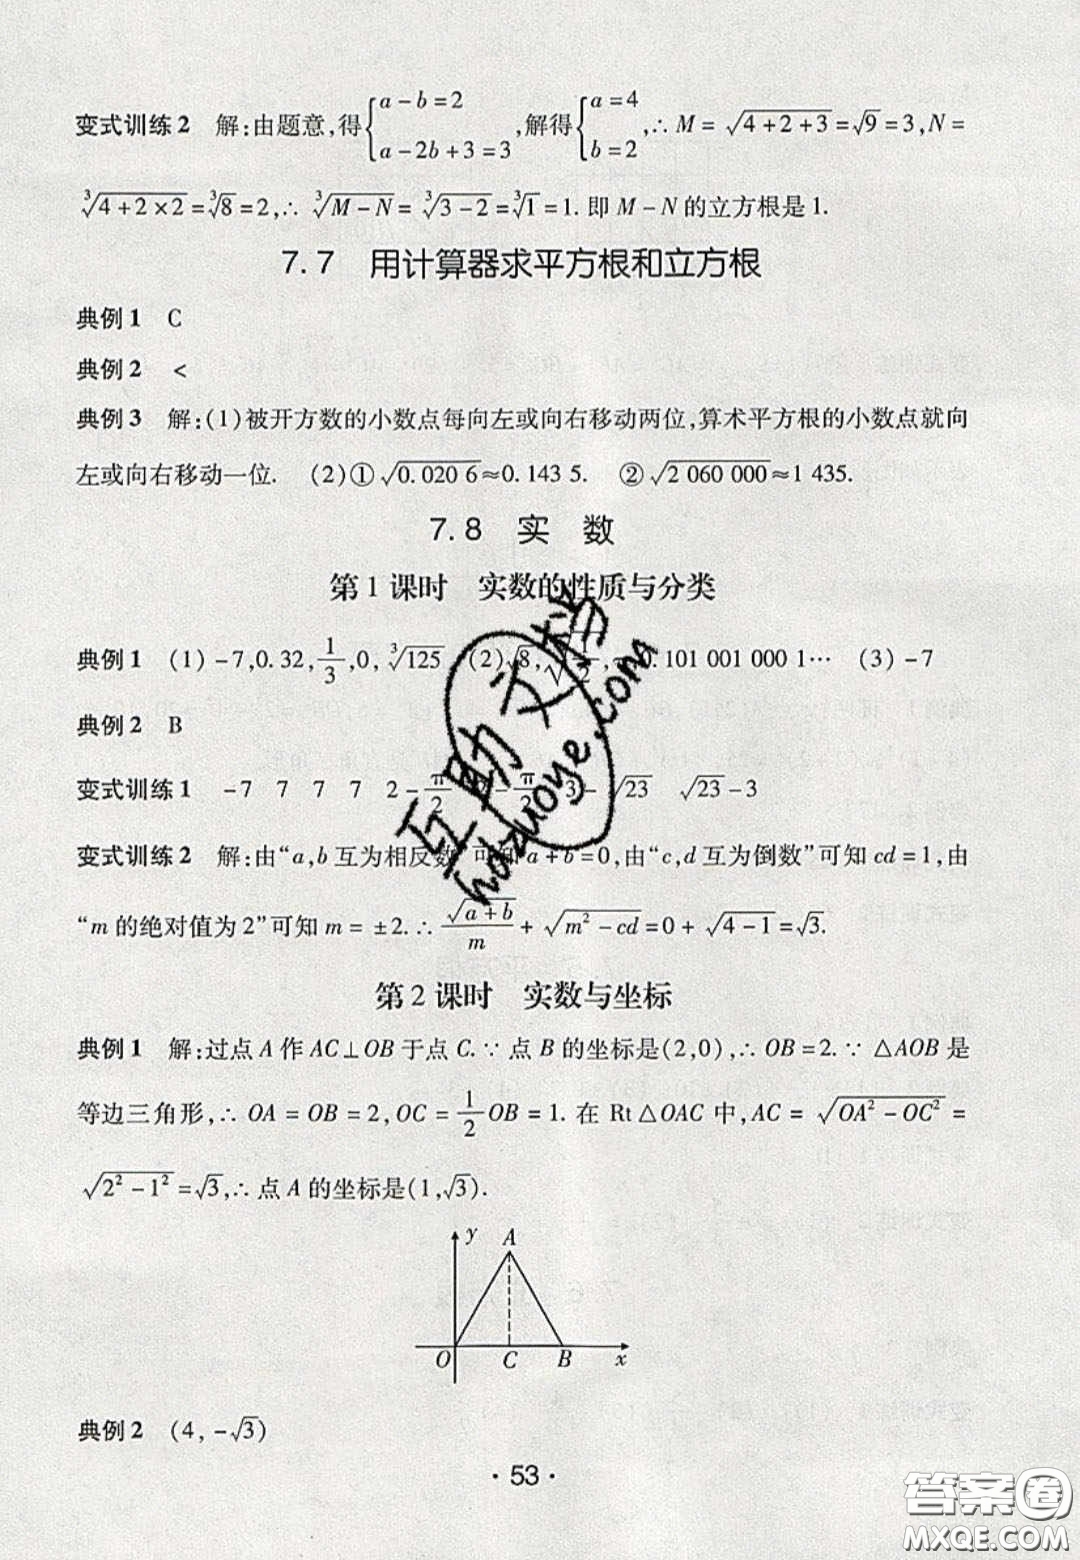 变式训练2 解:由题意,得{a-b=2 a-2b+3=3,解得{a=4 b=2,∴M=√(4+2+3)=√9=3,N=
∛(4+2×2)=∛8=2,∴∛(M-N)=∛(3-2)=∛1=1.即M-N的立方根是1.
7.7 用计算器求平方根和立方根
典例1 C
典例2 <
典例3 解:(1)被开方数的小数点每向左或向右移动两位,算术平方根的小数点就向
左或向右移动一位. (2)①√0.020 6≈0.143 5. ②√2 060 000≈1 435.
7.8 实 数
第1课时 实数的性质与分类
典例1 (1)-7,0.32,1/3,0,∛125 (2)√8, 0.101 001 000 1… (3)-7
典例2 B
变式训练1 -7 7 7 7 2-π/2 π/2 3-√23 √23-3
变式训练2 解:由“a,b互为相反数”可知a+b=0,由“c,d互为倒数”可知cd=1,由
“m的绝对值为2”可知m=±2.∴√(a+b)/m+√(m²-cd)=0+√(4-1)=√3.
第2课时 实数与坐标
典例1 解:过点A作AC⊥OB于点C.∵点B的坐标是(2,0),∴OB=2.∵△AOB是
等边三角形,∴OA=OB=2,OC=1/2OB=1.在Rt△OAC中,AC=√(OA²-OC²)=
√(2²-1²)=√3,∴点A的坐标是(1,√3).
y A
O C B x
典例2 (4,-√3)
·53·
互助文档
hdzuoye.com
答案圈
MXQE.COM